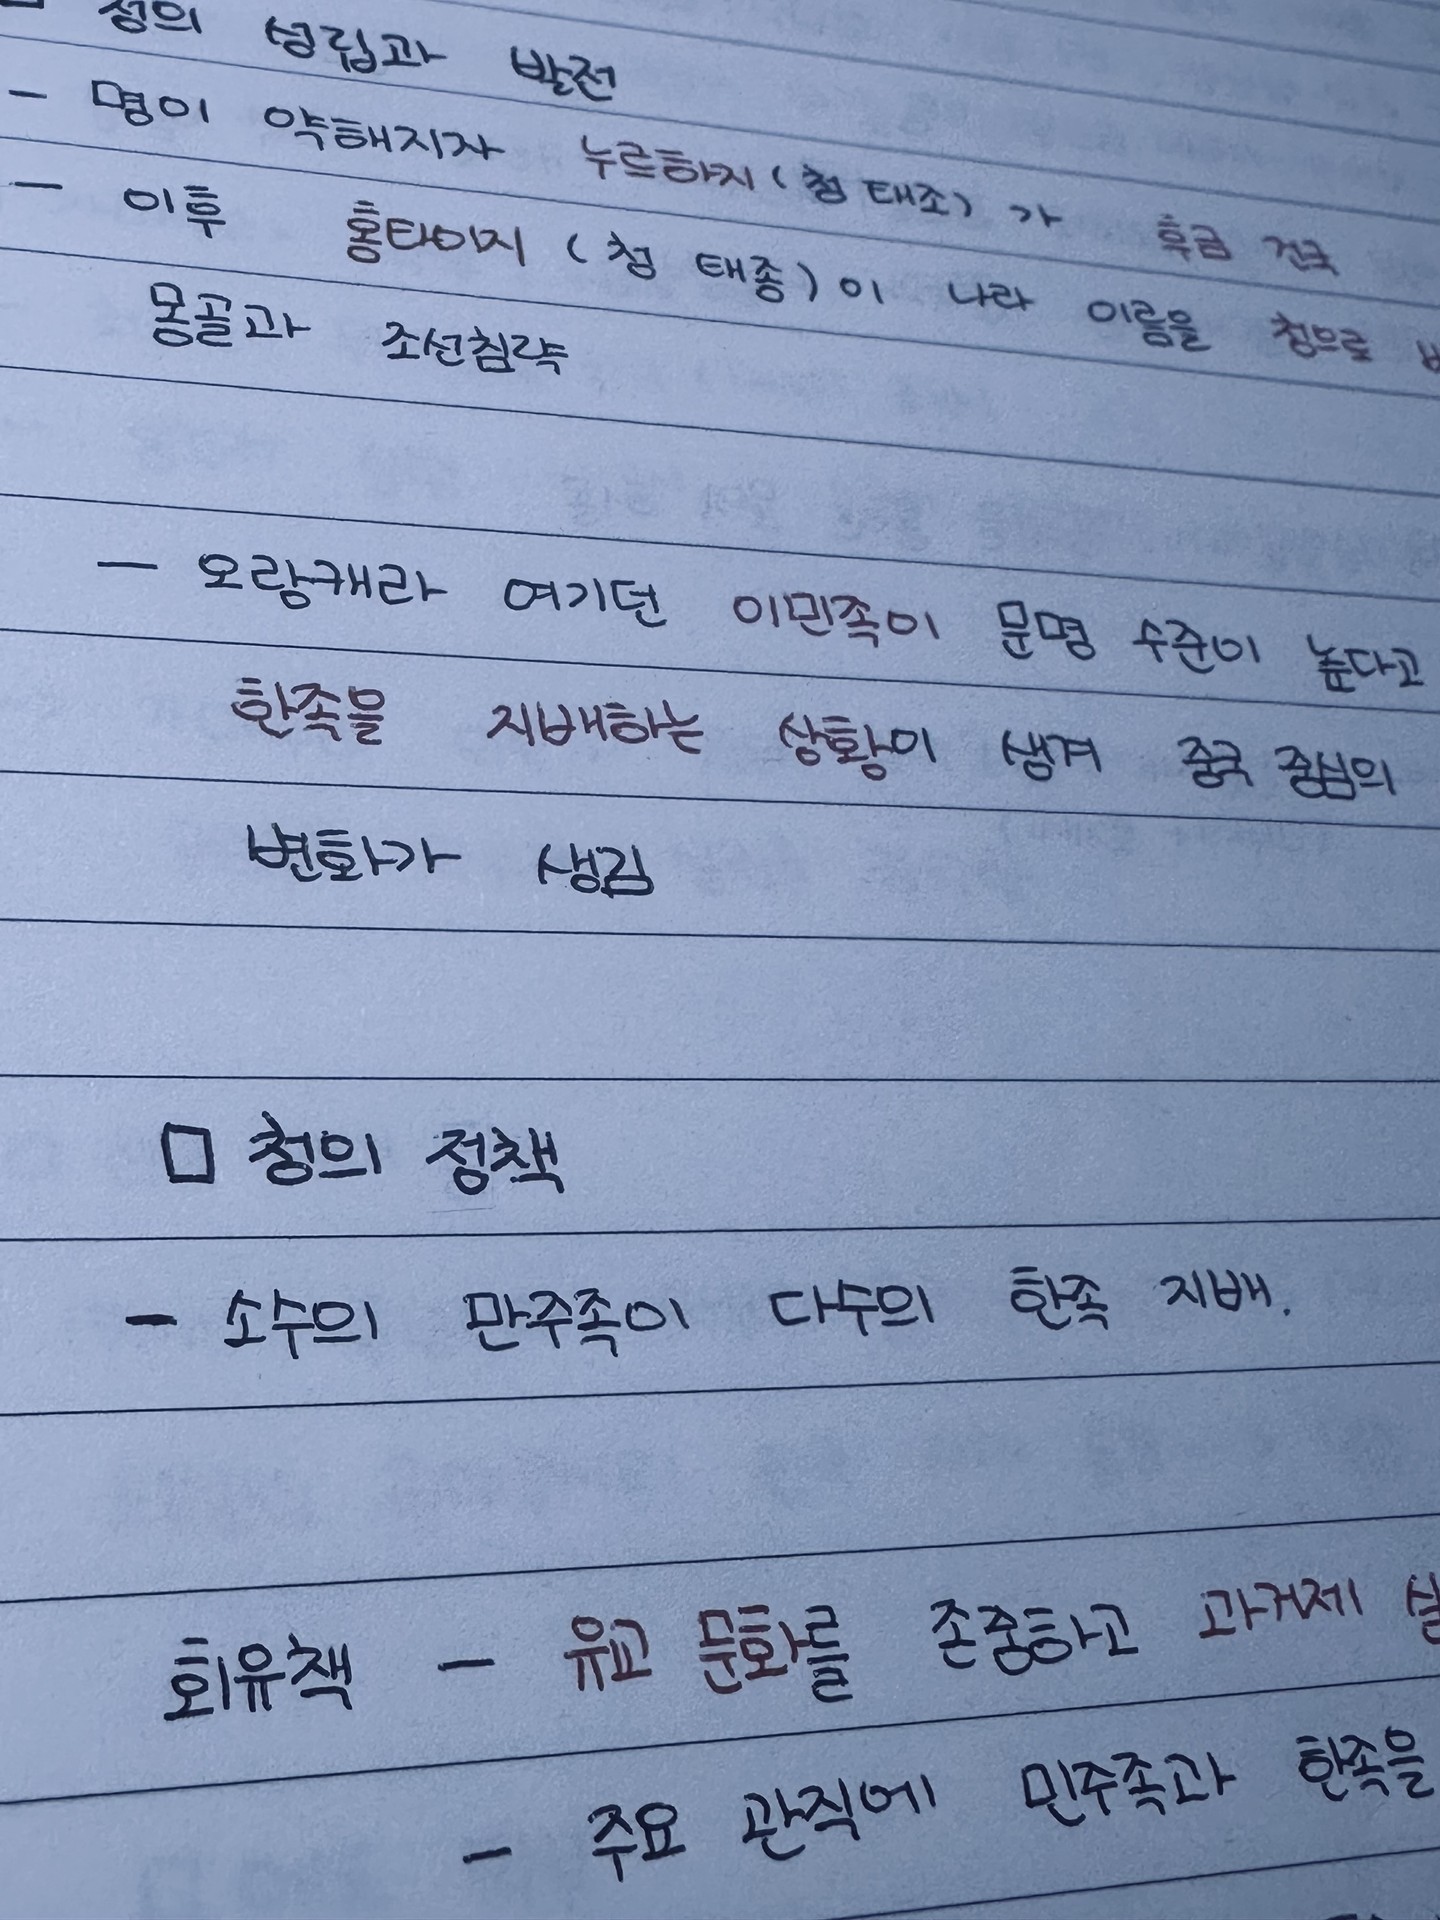 □ 청의 성립과 발전
- 명이 약해지자 누르하치(청 태조)가 후금 건국
- 이후 홍타이지(청 태종)이 나라 이름을 청으로
몽골과 조선침략
- 오랑캐라 여기던 이민족이 문명 수준이 높다고
한족을 지배하는 상황이 생겨 중국 중심의
변화가 생김
□ 청의 정책
- 소수의 만주족이 다수의 한족 지배.
회유책 - 유교 문화를 존중하고 과거제
- 주요 관직에 민주족과 한족을